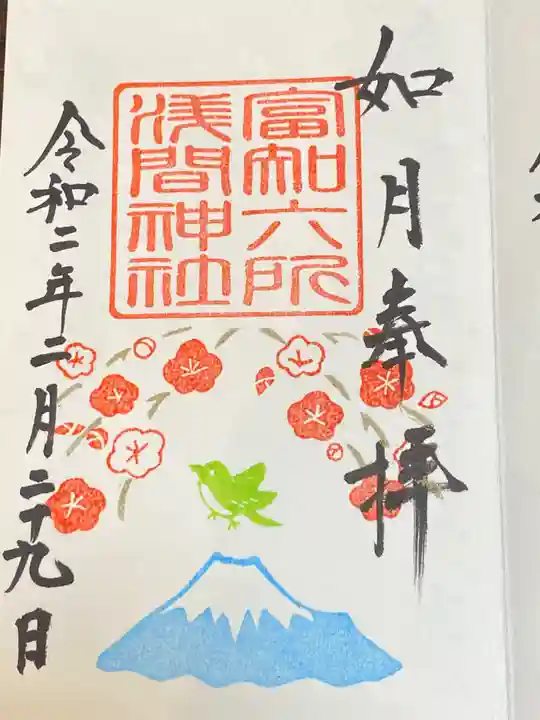 如月奉拝
富知六所
浅間神社
令和二年二月二十九日